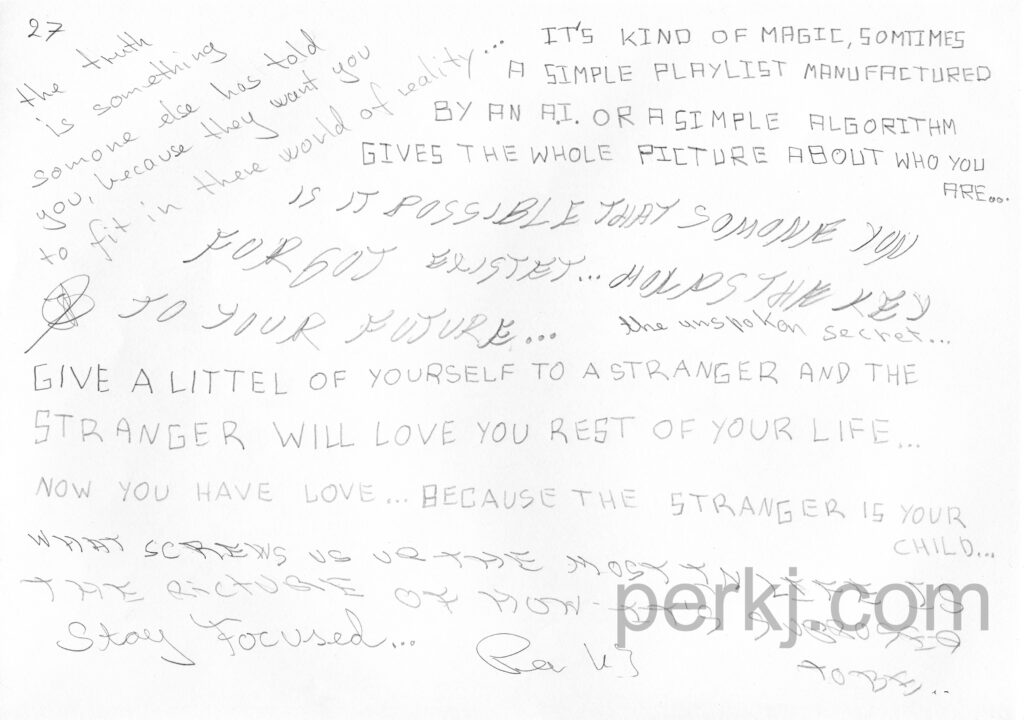 27
the truth
is something
somone else has told
you, because they want you
to fit in there world of reality...
IT'S KIND OF MAGIC, SOMTIMES
A SIMPLE PLAYLIST MANUFACTURED
BY AN A.I. OR A SIMPLE ALGORITHM
GIVES THE WHOLE PICTURE ABOUT WHO YOU
ARE...
IS IT POSSIBLE THAT SOMONE YOU
FORGOT EXISTET... HOLDS THE KEY
TO YOUR FUTURE...
the unspokan secret...
GIVE A LITTEL OF YOURSELF TO A STRANGER AND THE
STRANGER WILL LOVE YOU REST OF YOUR LIFE...
NOW YOU HAVE LOVE... BECAUSE THE STRANGER IS YOUR
CHILD...
WHAT SCREWS US UP THE MOST IN LIFE IS
THE PICTURE OF HOW SUPPOSED
TO BE...
Stay Focused...
Per kj
perkj.com